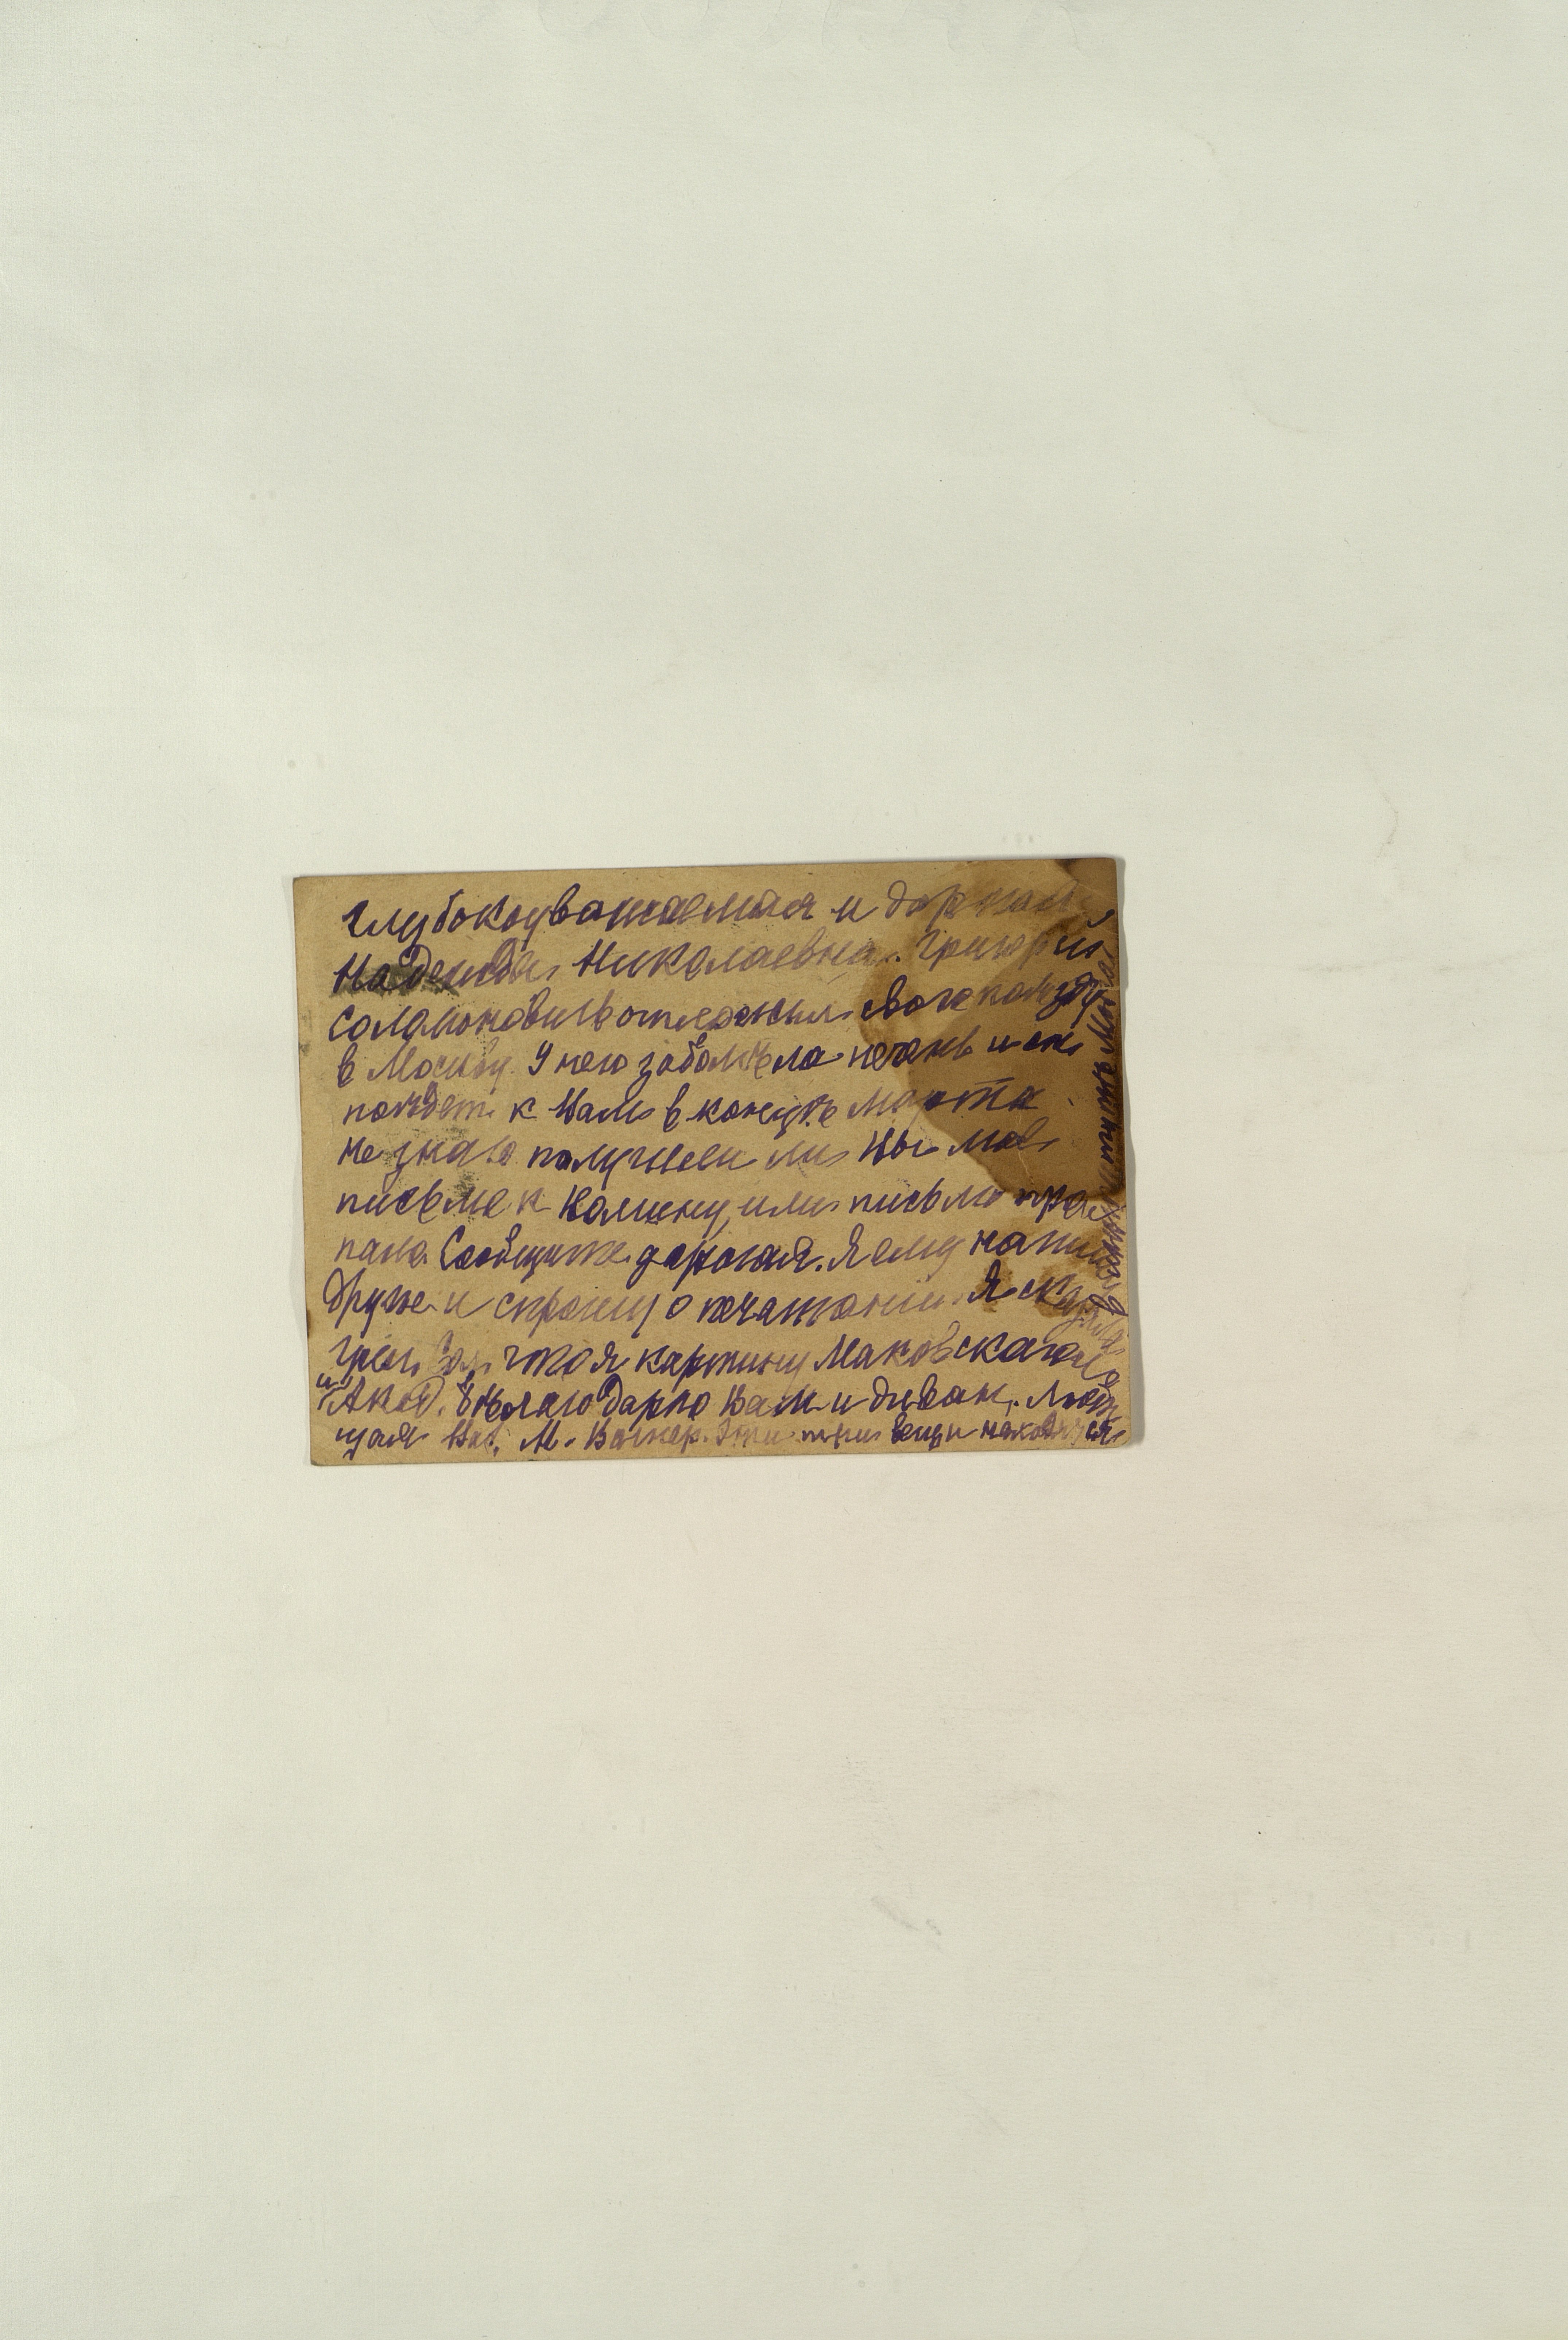 Глубокоуважаемая и дорогая
Надежда Николаевна. Григорій
Соламоновичь отложил свою поездку
в Москву. У него заболѣла печень и он
поѣдет к Вам в концѣ марта
не знаю получили ли Вы мое
письмо к Камину, или письмо про
пало. Сообщите дорогая. Я ему напишу
Друже и спрошу о печатании. Я сказала
Григ. Сол. что я картину Маковскаго и
Акад. благодарю Вам и диван. Любя
щая Вас М. Вагнер. Эти три вещи находятся